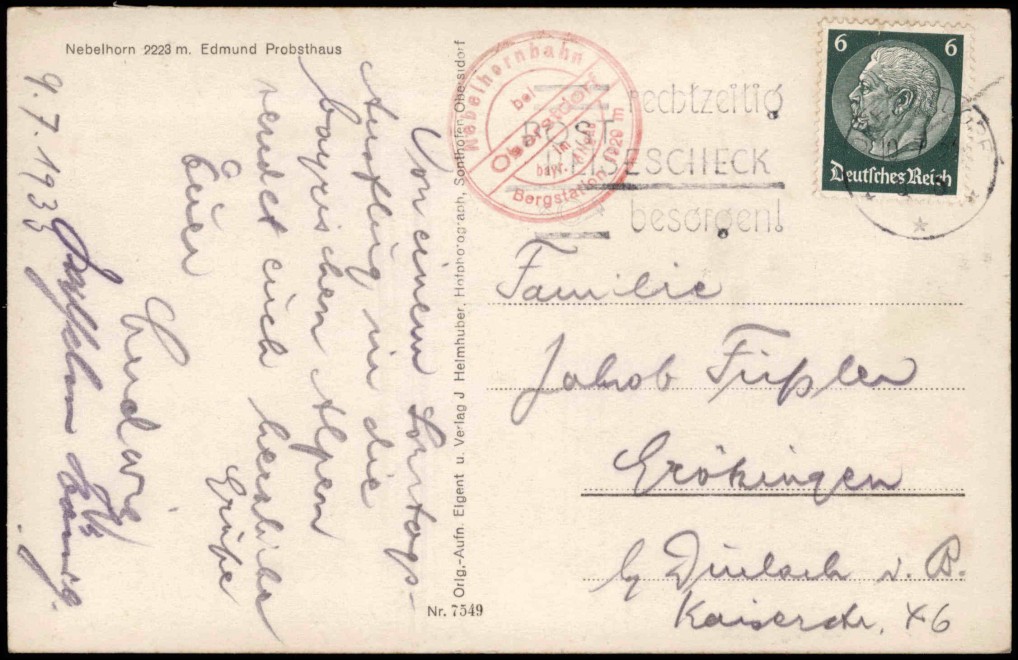 Nebelhorn 2223 m. Edmund Probsthaus
9.7.1933
Von einem Sonntags-
Ausflug in die
bayrischen Alpen
sendet euch herzliche
Grüße
Euer
Ludwig
Orig.-Aufn. Eigent u. Verlag J Heimhuber, Hofphotograph Sonthofen, Oberstdorf
Nr. 7549
Nebelhornbahn
bei
Oberstdorf
im
bayr. Allgäu
Bergstation 1929 m
rechtzeitig
POST
REISESCHECK
besorgen!
6 6
Deutsches Reich
Familie
Jakob Füßler
Grökingen
b/ Durlach v. B.
Kaiserstr. 46